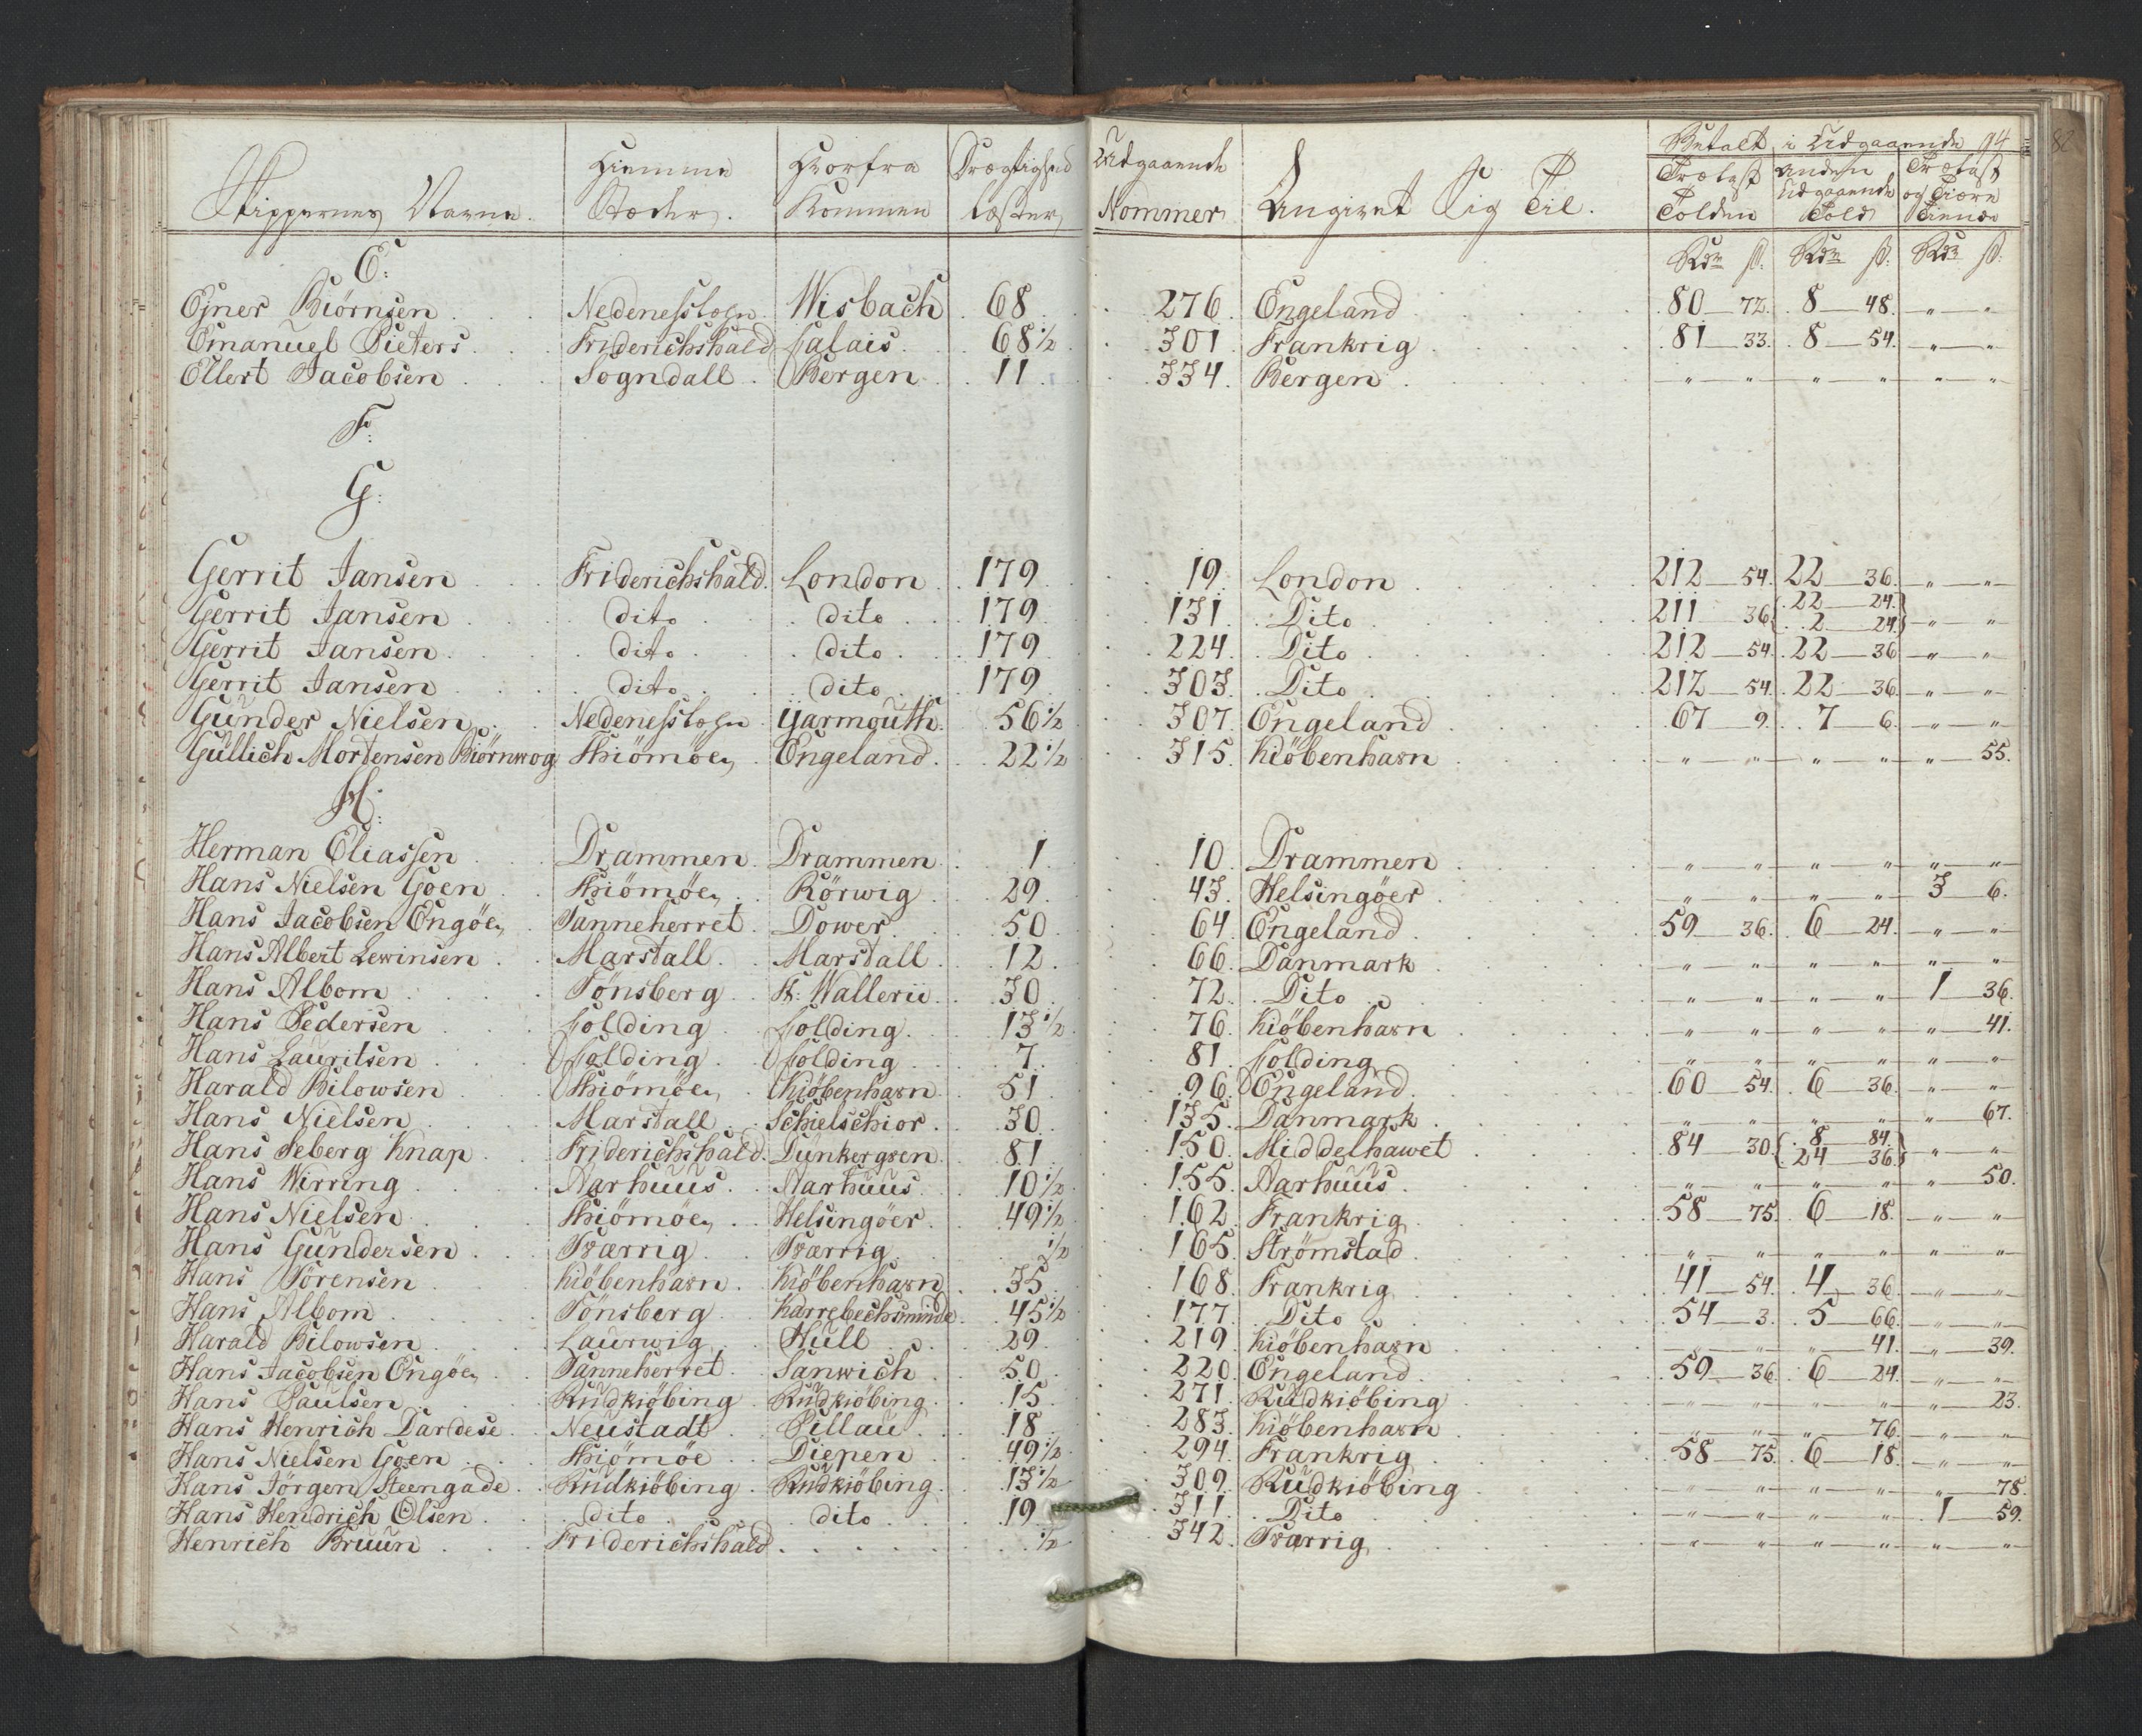 Skippernes Navne. Hiemme Stæder. Hvorfra Kommen Drægtighed Læster Udgaaende Nommer Angivet Sig Til. Betalt i Udgaaende 94 82
Trælast Tolden Anden Udgaaende Told Trælast og Tiære Tiende
Rdr ß. Rdr ß. Rdr ß.
E:
Ejner Biörnsen Nedeneslehn Wisbach 68 276. Engeland 80 72. 8 48. " "
Emanuel Pieters Friderichshald Calais 68 1/2 301. Frankrig 81 33. 8 54. " "
Ellert Jacobsen Sogndall Bergen 11 334. Bergen " " " " " "
F:
G:
Gerrit Jansen Friderichshald London 179 19. London 212 54. 22 36. " "
Gerrit Jansen dito dito 179 131. Dito 211 36 { 22 24. 2 24. } " "
Gerrit Jansen dito dito 179 224. Dito 212 54. 22 36 " "
Gerrit Jansen dito dito 179 303. Dito 212 54. 22 36. " "
Gunder Nielsen Nedeneslehn Yarmouth 56 1/2 307. Engeland 67 9. 7 6. " "
Güllich Mortensen Biörnwog Thiömöe Engeland 22 1/2 315. Kiöbenhavn " " " " " 55.
H:
Herman Eliassen Drammen Drammen 1 10. Drammen " " " " " "
Hans Nielsen Goen Thiömöe Rörwig 29. 43. Helsingöer " " " " 3 6.
Hans Jacobsen Engöe Sanneherret Dower 50 64. Engeland 59 36. 6 24. " "
Hans Albert Lewinsen Marstall Marstall 12. 66. Danmark " " " " " "
Hans Albom Tönsberg St: Wallerii 30 72. Dito " " " " 1 36.
Hans Pedersen Colding Colding 13 1/2 76. Kiöbenhavn " " " " " 41.
Hans Lauritsen Colding Colding 7. 81. Colding " " " " " "
Harald Bilowsen Thiömöe Kiöbenhavn 51 96. Engeland 60 54. 6 36. " "
Hans Nielsen Marstall Schielschior 30 135. Danmark " " " " " 67.
Hans Seberg Knap Friderichshald Dünkergven 81 150. Middelhawet 84 30. { 8 84. 24 36. } " "
Hans Wirring Aarhuus Aarhuus 10 1/2 155. Aarhuus " " " " " 50.
Hans Nielsen Thiömöe Helsingöer 49 1/2 162. Frankrig 58 75. 6 18. " "
Hans Gundersen Svarrig Svarrig 1/2 165. Strömstad " " " " " "
Hans Sörensen Kiöbenhavn Kiöbenhavn 35 168. Frankrig 41 54. 4 36. " "
Hans Albom Tönsberg Karrebechsminde 45 1/2 177. Dito 54 3. 5 66. " "
Harald Bilowsen Laurwig Hull 29. 219. Kiöbenhavn " " " 41. " 39.
Hans Jacobsen Engöe Sanneherret Sanwich 50 220. Engeland 59 36. 6 24. " "
Hans Paulsen Rudkiöbing Rudkiöbing 15 271. Rudkiöbing " " " " " 23.
Hans Henrich Dardese Neustadt Pillau 18 283. Kiöbenhavn " " " 76. " "
Hans Nielsen Goen Thiömöe Diepen 49 1/2 294. Frankrig 58 75. 6 18. " "
Hans Jörgen Steengade Rudkiöbing Rudkiöbing 13 1/2 309. Rudkiöbing " " " " " 78.
Hans Hendrich Olsen dito dito 19 311. Dito " " " " 1 59.
Henrich Bruun Friderichshald 1/2 342. Svarrig " " " " " "